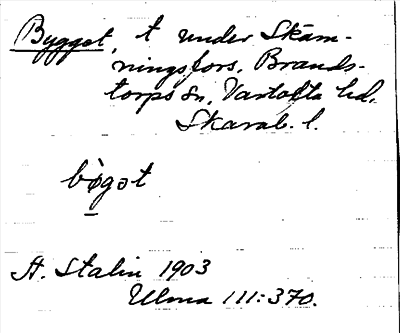 Bygget, t under Skäm-
ningsfors, Brands-
torps sn, Vartofta hd,
Skarab. l.
bògət
A. Stalin 1903
Ulma 111:370.